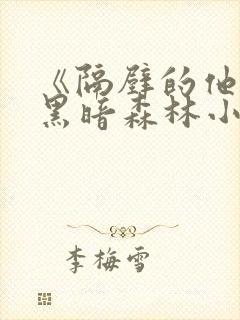 《隔壁的他
黑暗森林小
李梅雪